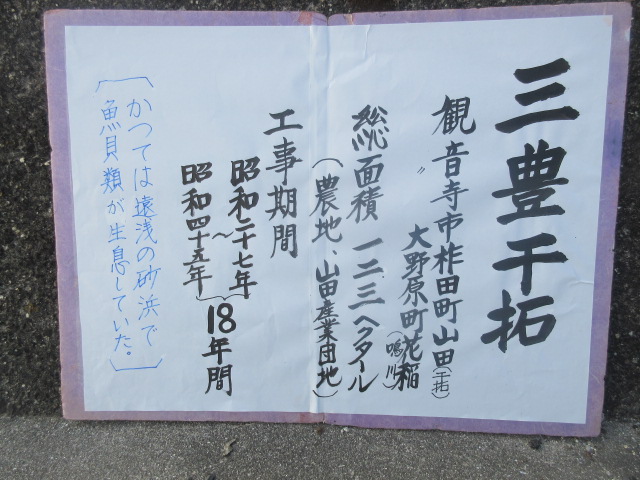 三豊干拓
観音寺市柞田町山田(干拓)
〃 大野原町花稲(鳴川)
総面積 一二三ヘクタール
(農地、山田産業団地)
工事期間
昭和二十七年
〜
昭和四十五年
18年間
かつては遠浅の砂浜で
魚貝類が生息していた。